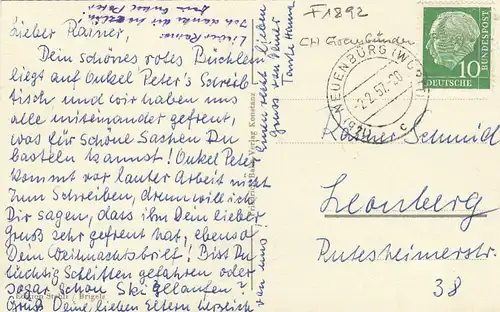 Lieber Rainer,
Dein schönes rotes Büchlein
liegt auf Onkel Peter's Schreib-
tisch und wir haben uns
alle miteinander gefreut,
was für schöne Sachen Du
basteln kannst! Onkel Peter
kommt vor lauter Arbeit nicht
zum Schreiben, drum will ich
Dir sagen, dass ihn Dein lieber
Gruß sehr gefreut hat, ebenso
Dein Weihnachtsbrief! Bist Du
tüchtig Schlitten gefahren oder
sogar schon Ski gelaufen?
Grüß Deine lieben Eltern herzlich
von uns!
Gruss von Deiner
Tante Hanna
Lieber Rainer
Ich danke dir
Dein Onkel Peter
Verlag Konstanz
Edition / Brigels
F 1892
CH Graubünden
NEUENBÜRG (WÜRTT)
-2.2.57.-20
c
DEUTSCHE
BUNDESPOST
10
Rainer Schmid
Leonberg
Rutesheimerstr.
38